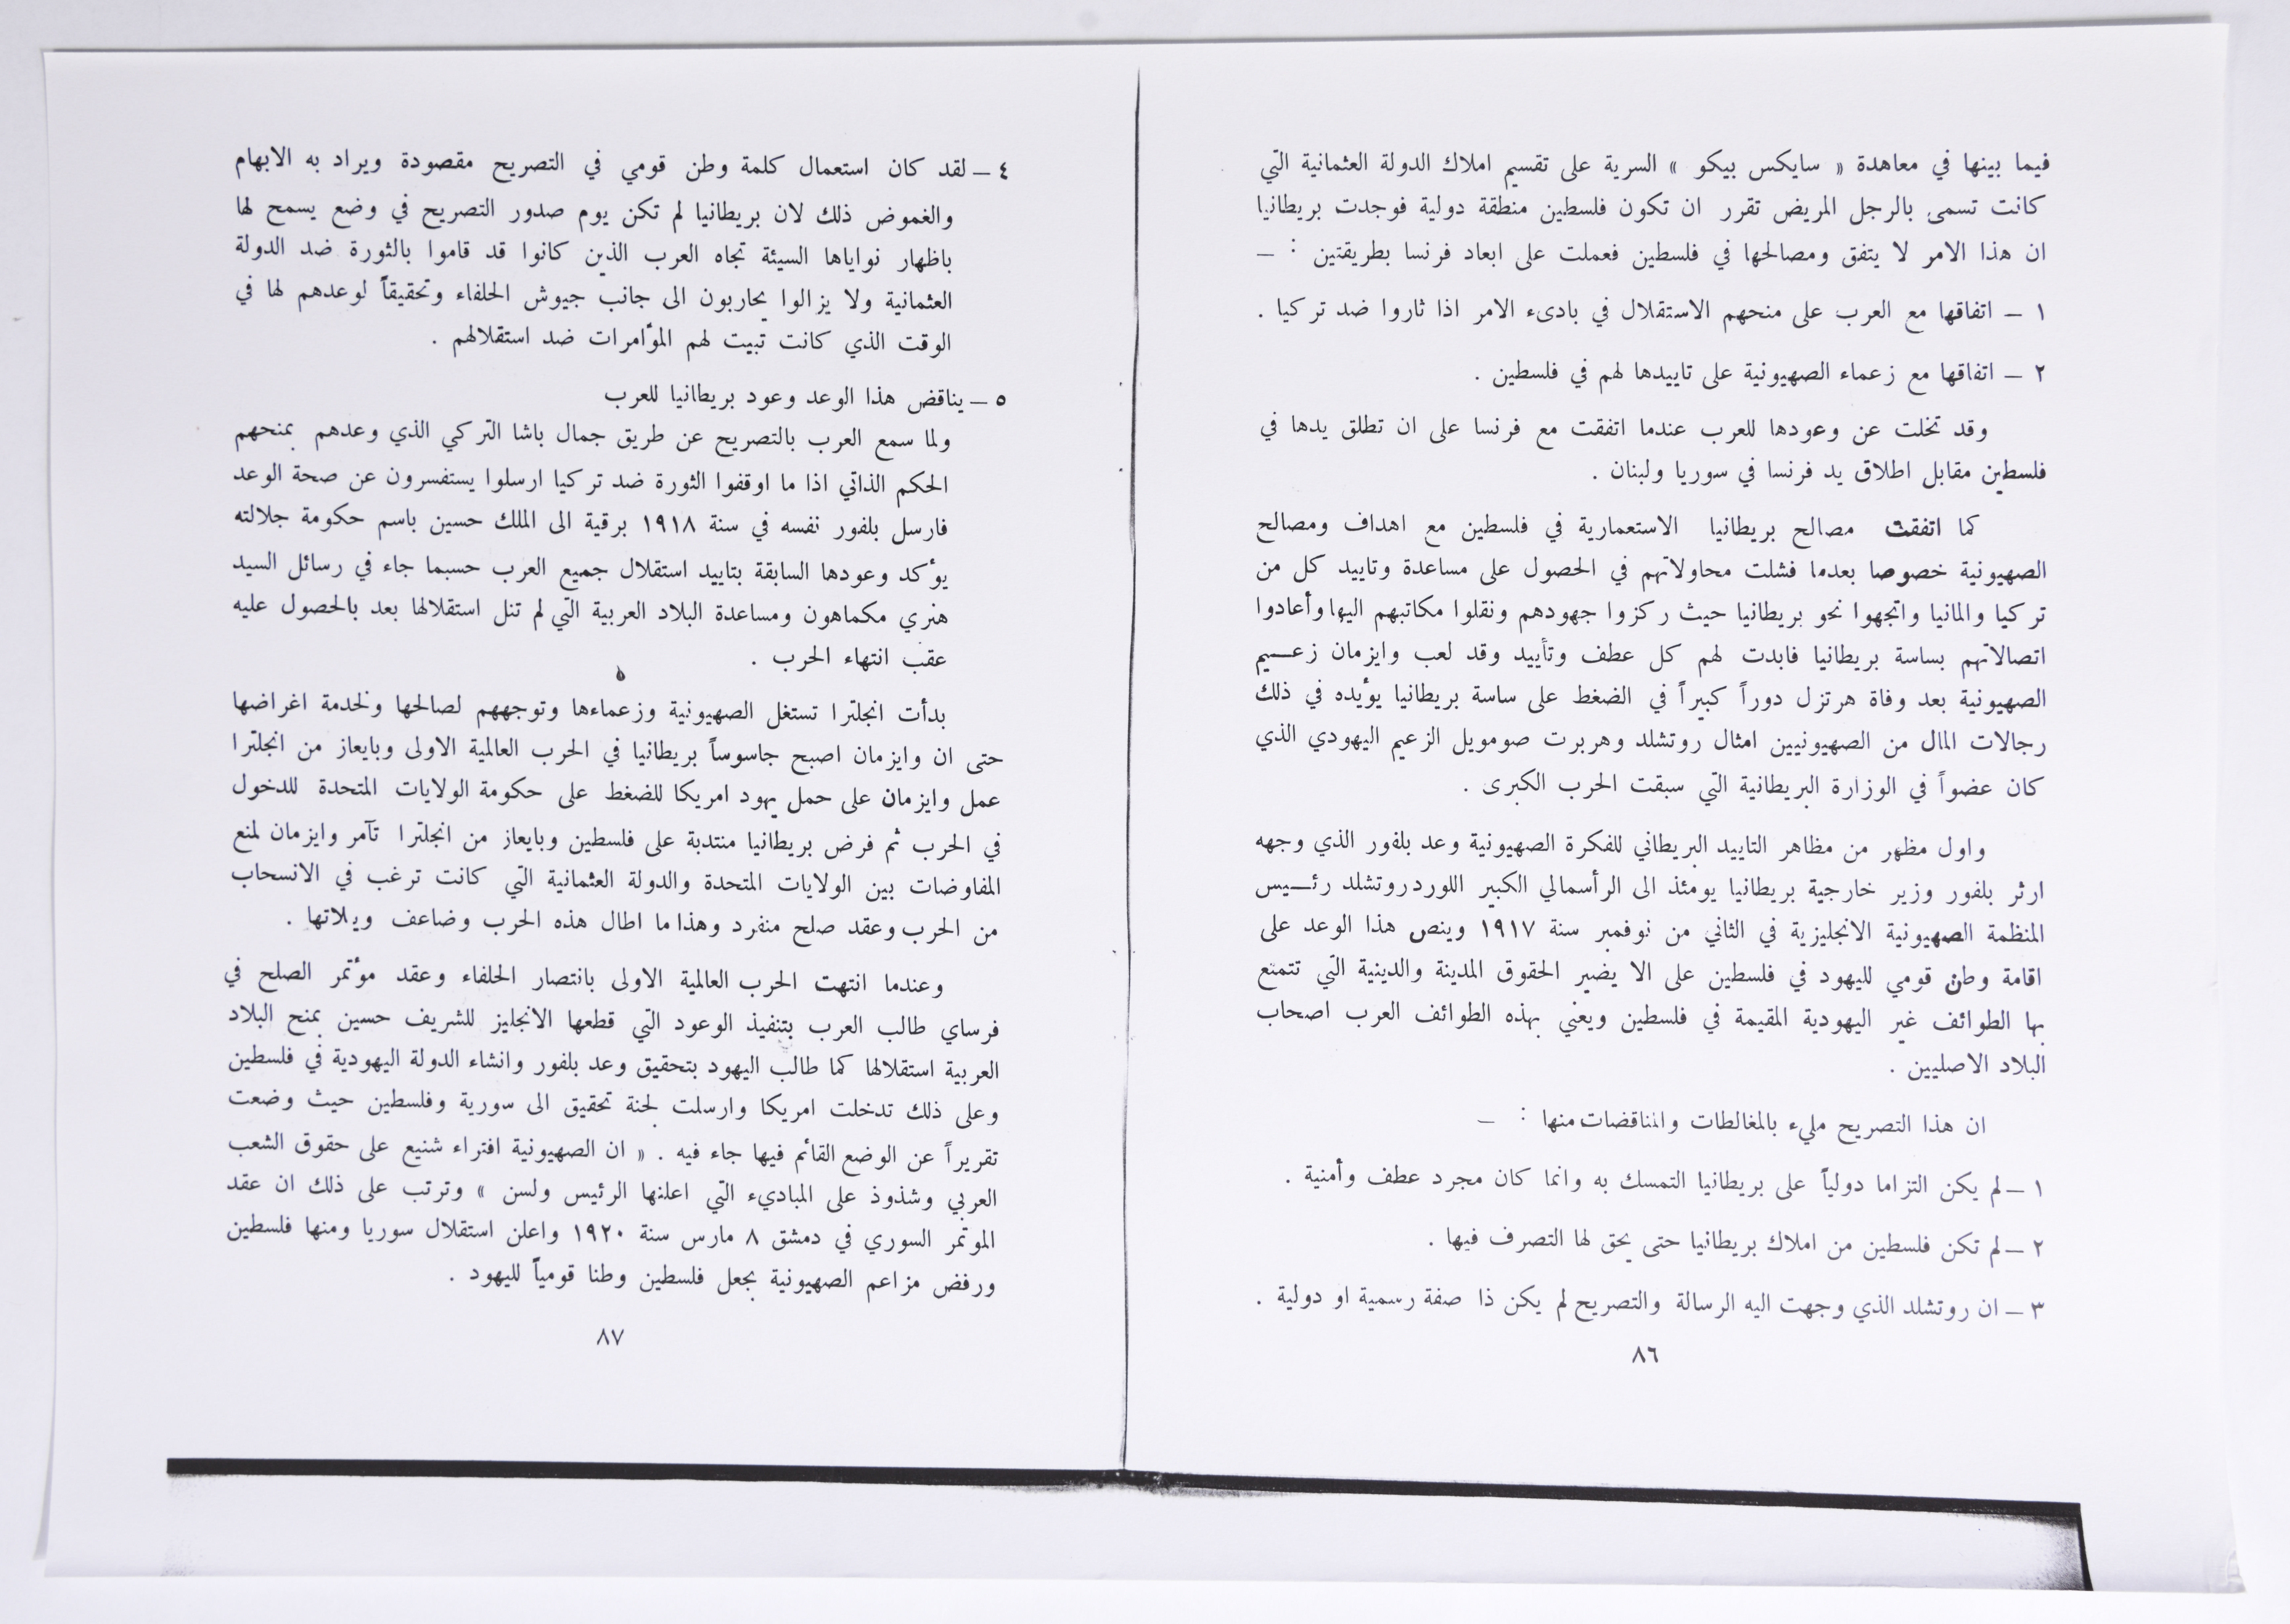 فيما بينها في معاهدة « سايكس بيكو » السرية على تقسيم املاك الدولة العثمانية التي
كانت تسمى بالرجل المريض تقرر ان تكون فلسطين منطقة دولية فوجدت بريطانيا
ان هذا الامر لا يتفق ومصالحها في فلسطين فعملت على ابعاد فرنسا بطريقتين : –
١ – اتفاقها مع العرب على منحهم الاستقلال في بادىء الامر اذا ثاروا ضد تركيا .
٢ – اتفاقها مع زعماء الصهيونية على تاييدها لهم في فلسطين .
وقد تخلت عن وعودها للعرب عندما اتفقت مع فرنسا على ان تطلق يدها في
فلسطين مقابل اطلاق يد فرنسا في سوريا ولبنان .
كما اتفقت مصالح بريطانيا الاستعمارية في فلسطين مع اهداف ومصالح
الصهيونية خصوصا بعدما فشلت محاولاتهم في الحصول على مساعدة وتاييد كل من
تركيا والمانيا واتجهوا نحو بريطانيا حيث ركزوا جهودهم ونقلوا مكاتبهم اليها وأعادوا
اتصالاتهم بساسة بريطانيا فابدت لهم كل عطف وتأييد وقد لعب وايزمان زعـــيم
الصهيونية بعد وفاة هرتزل دوراً كبيراً في الضغط على ساسة بريطانيا يؤيده في ذلك
رجالات المال من الصهيونيين امثال روتشلد وهربرت صومويل الزعيم اليهودي الذي
كان عضواً في الوزارة البريطانية التي سبقت الحرب الكبرى .
واول مظهر من مظاهر التاييد البريطاني للفكرة الصهيونية وعد بلفور الذي وجهه
ارثر بلفور وزير خارجية بريطانيا يومئذ الى الرأسمالي الكبير اللورد روتشلد رئـــيس
المنظمة الصهيونية الانجليزية في الثاني من نوفمبر سنة ١٩١٧ وينص هذا الوعد على
اقامة وطن قومي لليهود في فلسطين على الا يضير الحقوق المدينة والدينية التي تتمتع
بها الطوائف غير اليهودية المقيمة في فلسطين ويعني بهذه الطوائف العرب اصحاب
البلاد الاصليين .
ان هذا التصريح مليء بالمغالطات والمناقضات منها : –
١ – لم يكن التزاما دولياً على بريطانيا التمسك به وانما كان مجرد عطف وأمنية .
٢ – لم تكن فلسطين من املاك بريطانيا حتى يحق لها التصرف فيها .
٣ – ان روتشلد الذي وجهت اليه الرسالة والتصريح لم يكن ذا صفة رسمية او دولية .
٨٦
٤ – لقد كان استعمال كلمة وطن قومي في التصريح مقصودة ويراد به الابهام
والغموض ذلك لان بريطانيا لم تكن يوم صدور التصريح في وضع يسمح لها
باظهار نواياها السيئة تجاه العرب الذين كانوا قد قاموا بالثورة ضد الدولة
العثمانية ولا يزالوا يحاربون الى جانب جيوش الحلفاء وتحقيقاً لوعدهم لها في
الوقت الذي كانت تبيت لهم المؤامرات ضد استقلالهم .
٥ – يناقض هذا الوعد وعود بريطانيا للعرب
ولما سمع العرب بالتصريح عن طريق جمال باشا التركي الذي وعدهم بمنحهم
الحكم الذاتي اذا ما اوقفوا الثورة ضد تركيا ارسلوا يستفسرون عن صحة الوعد
فارسل بلفور نفسه في سنة ١٩١٨ برقية الى الملك حسين باسم حكومة جلالته
يؤكد وعودها السابقة بتاييد استقلال جميع العرب حسبما جاء في رسائل السيد
هنري مكماهون ومساعدة البلاد العربية التي لم تنل استقلالها بعد بالحصول عليه
عقب انتهاء الحرب .
بدأت انجلترا تستغل الصهيونية وزعماءها وتوجههم لصالحها ولخدمة اغراضها
حتى ان وايزمان اصبح جاسوساً بريطانيا في الحرب العالمية الاولى وبايعاز من انجلترا
عمل وايزمان على حمل يهود امريكا للضغط على حكومة الولايات المتحدة للدخول
في الحرب ثم فرض بريطانيا منتدبة على فلسطين وبايعاز من انجلترا تآمر وايزمان لمنع
المفاوضات بين الولايات المتحدة والدولة العثمانية التي كانت ترغب في الانسحاب
من الحرب وعقد صلح منفرد وهذا ما اطال هذه الحرب وضاعف ويلاتها .
وعندما انتهت الحرب العالمية الاولى بانتصار الحلفاء وعقد مؤتمر الصلح في
فرساي طالب العرب بتنفيذ الوعود التي قطعها الانجليز للشريف حسين بمنح البلاد
العربية استقلالها كما طالب اليهود بتحقيق وعد بلفور وانشاء الدولة اليهودية في فلسطين
وعلى ذلك تدخلت امريكا وارسلت لجنة تحقيق الى سورية وفلسطين حيث وضعت
تقريراً عن الوضع القائم فيها جاء فيه . « ان الصهيونية افتراء شنيع على حقوق الشعب
العربي وشذوذ على المباديء التي اعلنها الرئيس ولسن » وترتب على ذلك ان عقد
الموتمر السوري في دمشق ٨ مارس سنة ١٩٢٠ واعلن استقلال سوريا ومنها فلسطين
ورفض مزاعم الصهيونية بجعل فلسطين وطنا قومياً لليهود .
٨٧